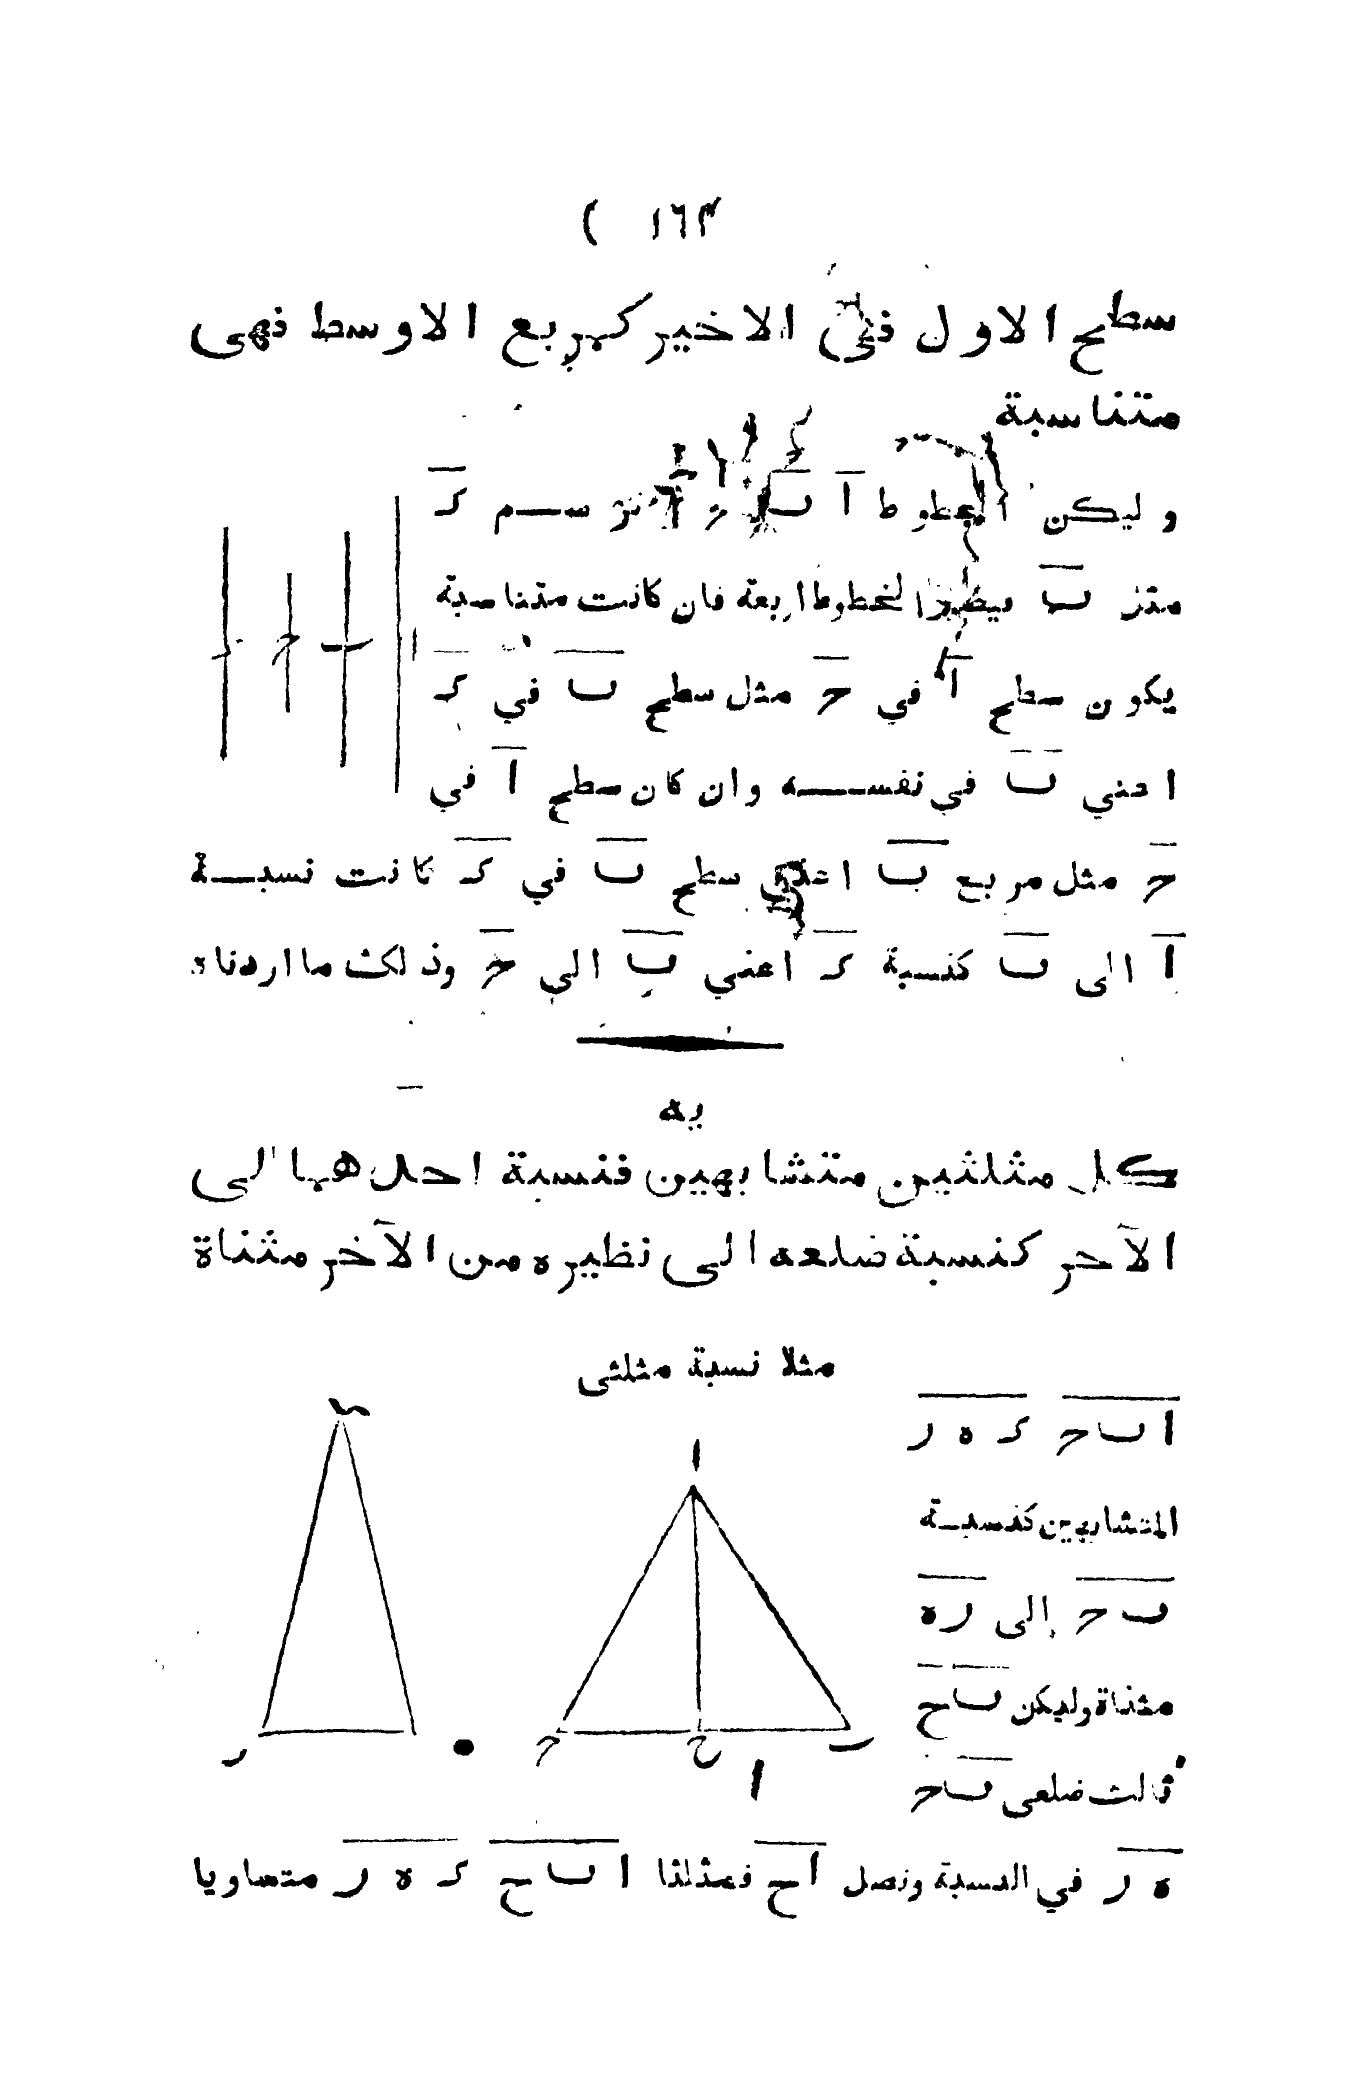 ( ١٦٣
سطح الاول في الاخير كمربع الاوسط فهى
متناسبة
وليكن الخطوط ا ب ونرسم د
مثل ب ليظهر الخطوط اربعة فان كانت متناسبة
يكون سطح ا في ح مثل سطح ب في د
اعني ب في نفسه وان كان سطح ا في
ح مثل مربع ب اعني سطح ب في د كانت نسبة
ا الى ب كنسبة د اعني ب الى ح وذلك ما اردناه
يه
كل مثلثين متشابهين فنسبة احدهما الى
الآخر كنسبة ضلعه الى نظيره من الآخر مثناة
مثلا نسبة مثلثى
ا ب ح د ه ر
المتشابهين كنسبة
ب ح إلى ر ه
مثناة وليكن ب ح
ثالث ضلعى ب ح
ه ر في النسبة ونصل ا ح فمثلثا ا ب ح د ه ر متساويا
ا ب ح د
ا
ح ح ب
ا
ر